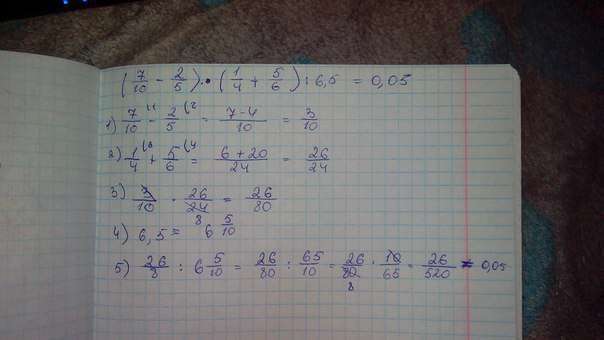 (7/10 - 2/5) · (1/4 + 5/6) : 6,5 = 0,05
1) 7/10 (1 - 2/5 (2 = 7-4/10 = 3/10
2) 1/4 (6 + 5/6 (4 = 6+20/24 = 26/24
3) 3/10 · 26/24 8 = 26/80
4) 6,5 = 6 5/10
5) 26/8 : 6 5/10 = 26/80 : 65/10 = 26/80 8 · 10/65 = 26/520 = 0,05